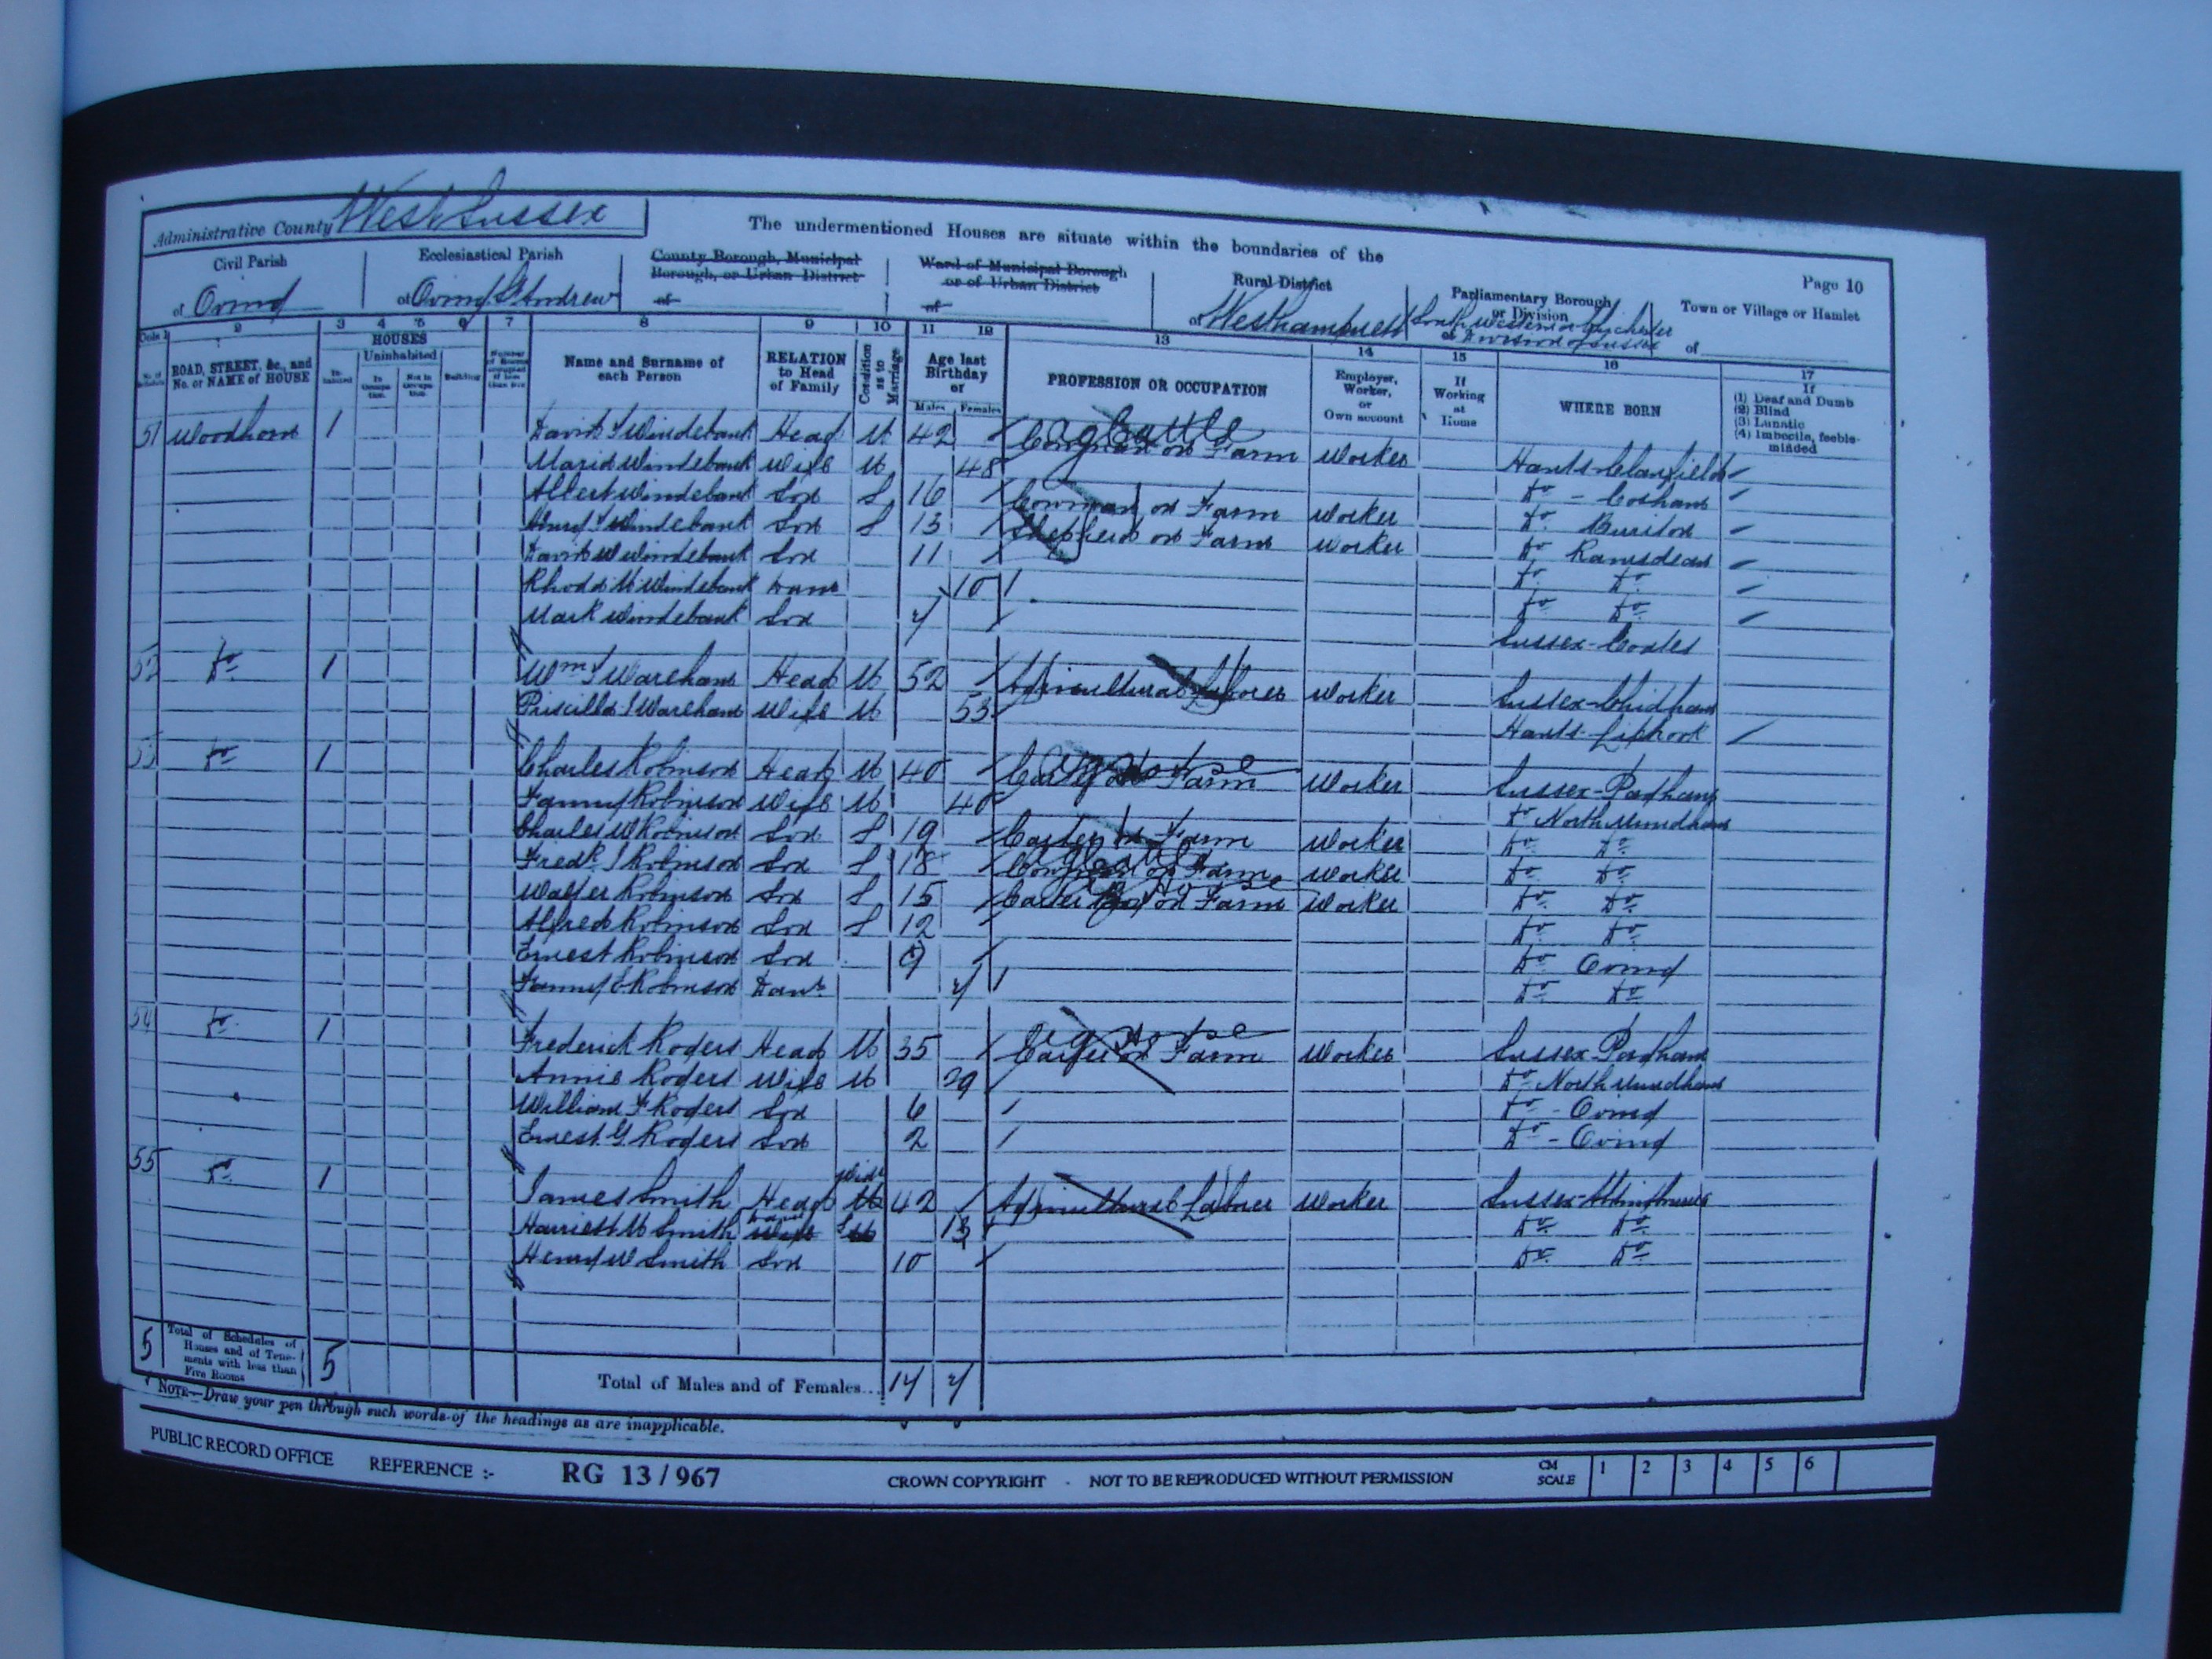 Administrative County West Sussex
The undermentioned Houses are situate within the boundaries of the
Page 10
Civil Parish
Ecclesiastical Parish
County Borough, Municipal Borough, or Urban District
Ward of Municipal Borough or of Urban District
Rural District
Parliamentary Borough or Division
Town or Village or Hamlet
of Oving
of Oving St Andrew
of
of
of Westhampnett
South Western or Chichester Division of Sussex
of
2 3 4 5 6 7 8 9 10 11 12 13 14 15 16 17
ROAD, STREET, &c., and No. or NAME of HOUSE
HOUSES
Inhabited
Uninhabited
In Occupation.
Not in Occupation.
Building
Name and Surname of each Person
RELATION to Head of Family
Condition as to Marriage
Age last Birthday of
Males
Females
PROFESSION OR OCCUPATION
Employer, Worker, or Own account
If Working at Home
WHERE BORN
If
(1) Deaf and Dumb
(2) Blind
(3) Lunatic
(4) Imbecile, feeble-minded
51 Woodhorn 1 David Windebank Head M 42 Cowman on Farm Worker Hants Clanfield
Maria Windebank Wife M 48 Do - Cosham
Albert Windebank Son S 16 Cowman on Farm Worker Do Buriton
Henry Windebank Son S 13 Shepherd on Farm Worker Do Ramsdean
David W Windebank Son 11 Do Do
Rhoda M Windebank Daur 10 Do Do
Mark Windebank Son 7 Sussex - Coates
52 Do 1 Wm Wareham Head M 52 Agricultural Laborer Worker Sussex - Chidham
Priscilla Wareham Wife M 53 Hants - Liphook
53 Do 1 Charles Robinson Head M 40 Carter on Farm Worker Sussex - Pagham
Fanny Robinson Wife M 40 Do North Mundham
Charles W Robinson Son S 19 Carter on Farm Worker Do Do
Fredk J Robinson Son S 18 Cowman on Farm Worker Do Do
Walter Robinson Son S 15 Carter Boy on Farm Worker Do Do
Alfred Robinson Son S 12 Do Do
Ernest Robinson Son 9 Do Oving
Fanny E Robinson Daur 7 Do Do
54 Do 1 Frederick Rogers Head M 35 Carter on Farm Worker Sussex - Pagham
Annie Rogers Wife M 29 Do North Mundham
William F Rogers Son 6 Do - Oving
Ernest G Rogers Son 2 Do - Oving
55 Do 1 James Smith Head Widr 42 Agricultural Laborer Worker Sussex -
Harriest M Smith Daur S 13 Do Do
Henry W Smith Son 10 Do Do
5 Total of Schedules of Houses and of Tenements with less than Five Rooms 5
Total of Males and of Females... 14 7
NOTE—Draw your pen through such words of the headings as are inapplicable.
PUBLIC RECORD OFFICE REFERENCE :- RG 13 / 967 CROWN COPYRIGHT - NOT TO BE REPRODUCED WITHOUT PERMISSION CM SCALE 1 2 3 4 5 6